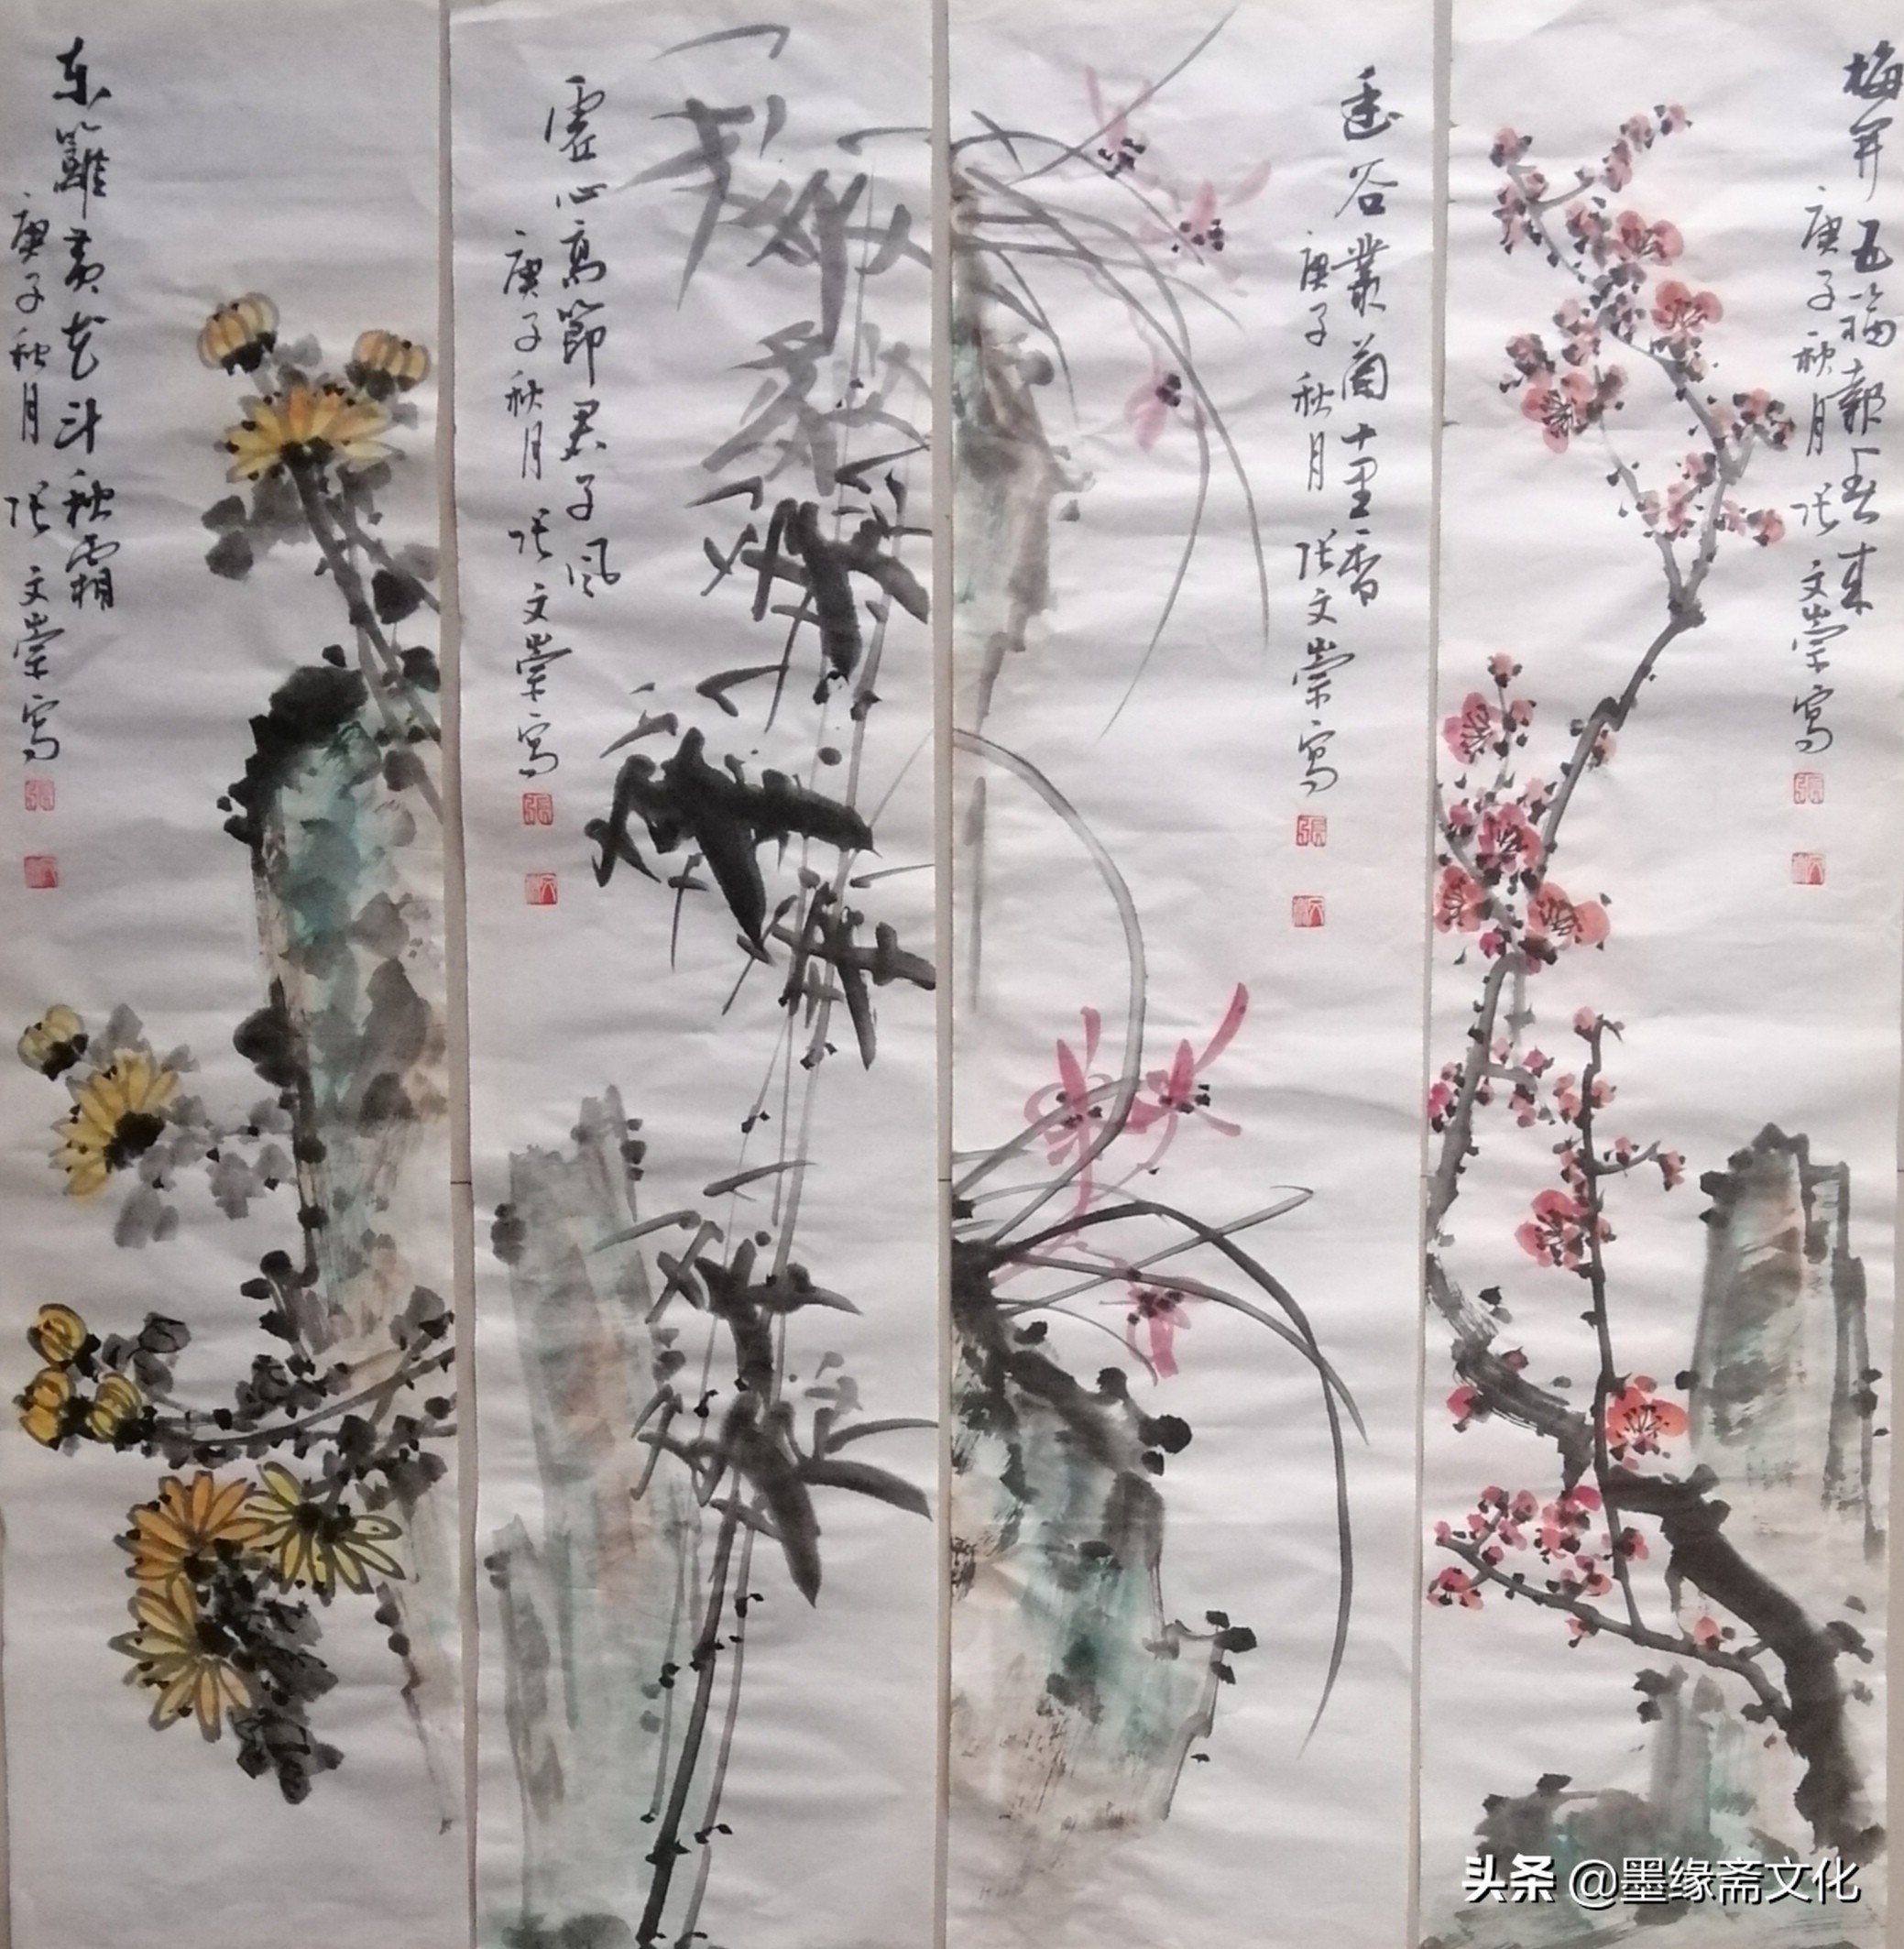 梅开五福報春来
庚子秋月 张文崇寫
張
幽谷叢蘭十里香
庚子秋月 张文崇寫
張
虚心高節君子風
庚子秋月 张文崇寫
張
东籬黄花斗秋霜
庚子秋月 张文崇寫
張
头条 @墨缘斋文化